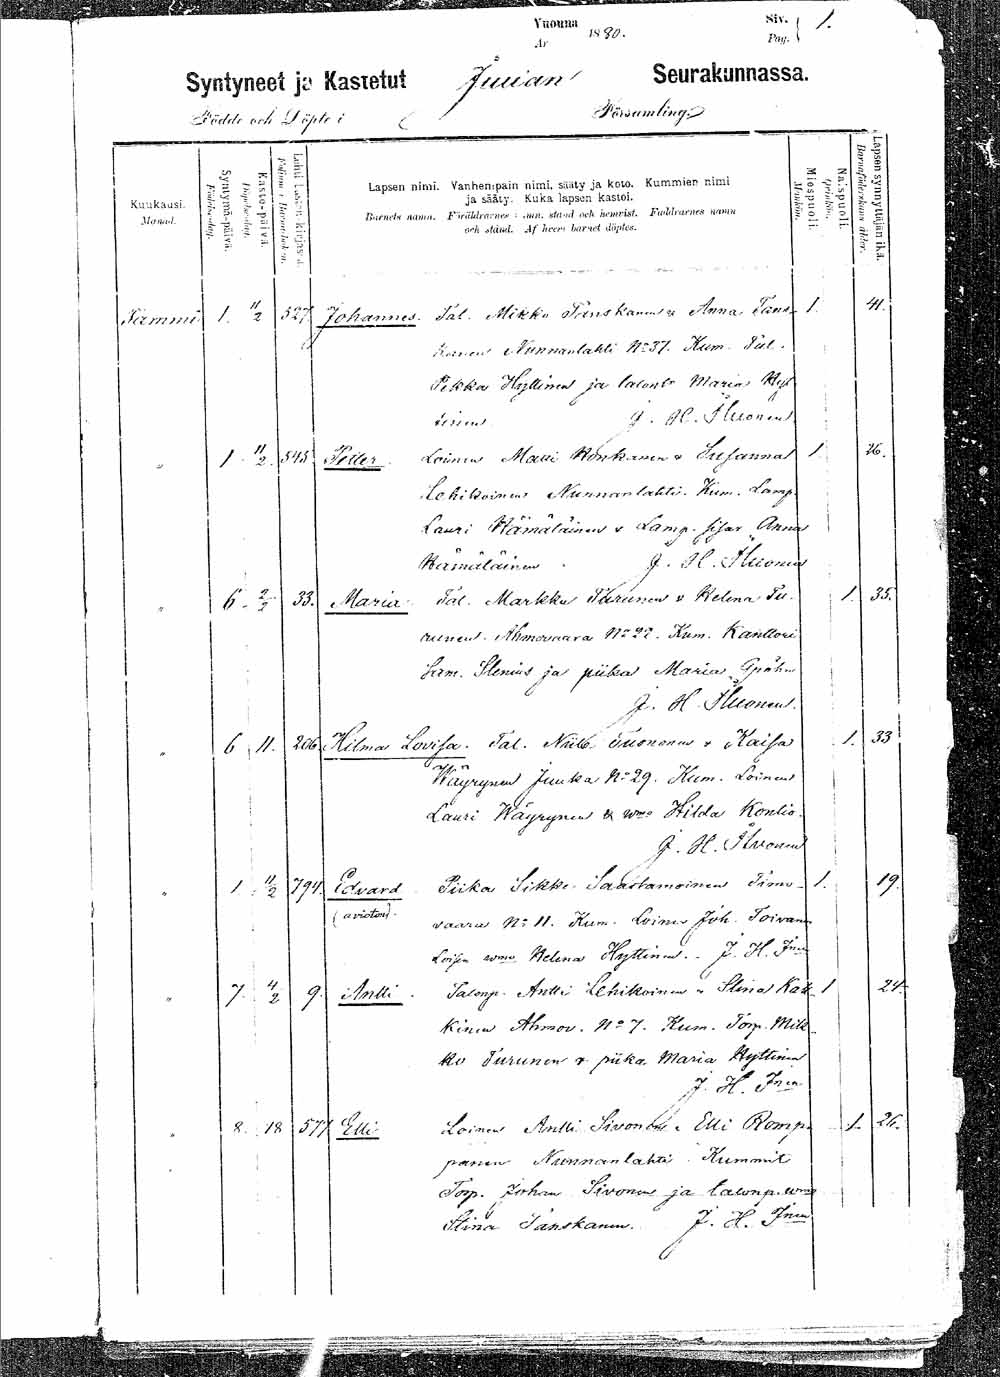 Vuonna 1880. Siv. 1.
År Pag.
Syntyneet ja Kastetut Juuan Seurakunnassa.
Födde och Döpte i Församling.
Kuukausi. Månad.
Syntymä-päivä. Födelsedag.
Kaste-päivä. Dopelsedag.
Lehti Lasten-kirjassa. Folium i Barnaboken.
Lapsen nimi. Vanhempain nimi, sääty ja koto. Kummien nimi
ja sääty. Kuka lapsen kastoi.
Barnets namn. Föräldrarnes namn, stånd och hemvist. Faddrarnes namn
och stånd. Af hvem barnet döptes.
Miespuoli. Mankön.
Naispuoli. Qvinkön.
Lapsen synnyttäjän ikä. Barnaföderskans ålder.
Tammi 1. 11/2 527. Johannes. Tal. Mikko Tanskanen & Anna Tans- 1. 41.
kanen Nunnanlahti No 37. Kum. Tal.
Pekka Hyttinen ja talont. Maria Hyt
tinen J. H. Ihonen
" 1 11/2 545 Petter. Loinen Matti Ronkanen & Susanna 1 26.
Lehikoinen Nunnanlahti. Kum. Lamp.
Lauri Hämäläinen & Lamp. sisar Anna
Hämäläinen. J. H. Ihonen
" 6 2/2 33. Maria. Tal. Markku Turunen & Helena Tu- 1. 35.
runen. Ahmovaara No 22. Kum. Kanttori
Herm. Stenius ja piika Maria
J. H. Ihonen.
" 6 11. 206 Hilma Lovisa. Tal. Niilo Tuononen & Kaisa 1. 33
Wäyrynen Juuka No 29. Kum. Loinen
Lauri Wäyrynen & wmo Hilda Kontio.
J. H. Ihonen
" 1 11/2 794. Edvard Piika Sikke Saastamoinen Timo- 1. 19.
(avioton). vaara No 11. Kum. Loinen Joh. Toivanen
Loisen wmo Helena Hyttinen. J. H. Inen
" 7. 4/2 9. Antti. Talonp. Antti Lehikoinen & Stina Kak- 1 24.
kinen Ahmov. No 7. Kum. Torp. Mik-
ko Turunen & piika Maria Hyttinen
J. H. Inen
" 8. 18 577 Elli Loinen Antti Sivonen & Elli Romp- 1. 26.
panen Nunnanlahti Kummit
Torp. Johan Sivonen ja talonp. wmo
Stina Tanskanen. J. H. Inen